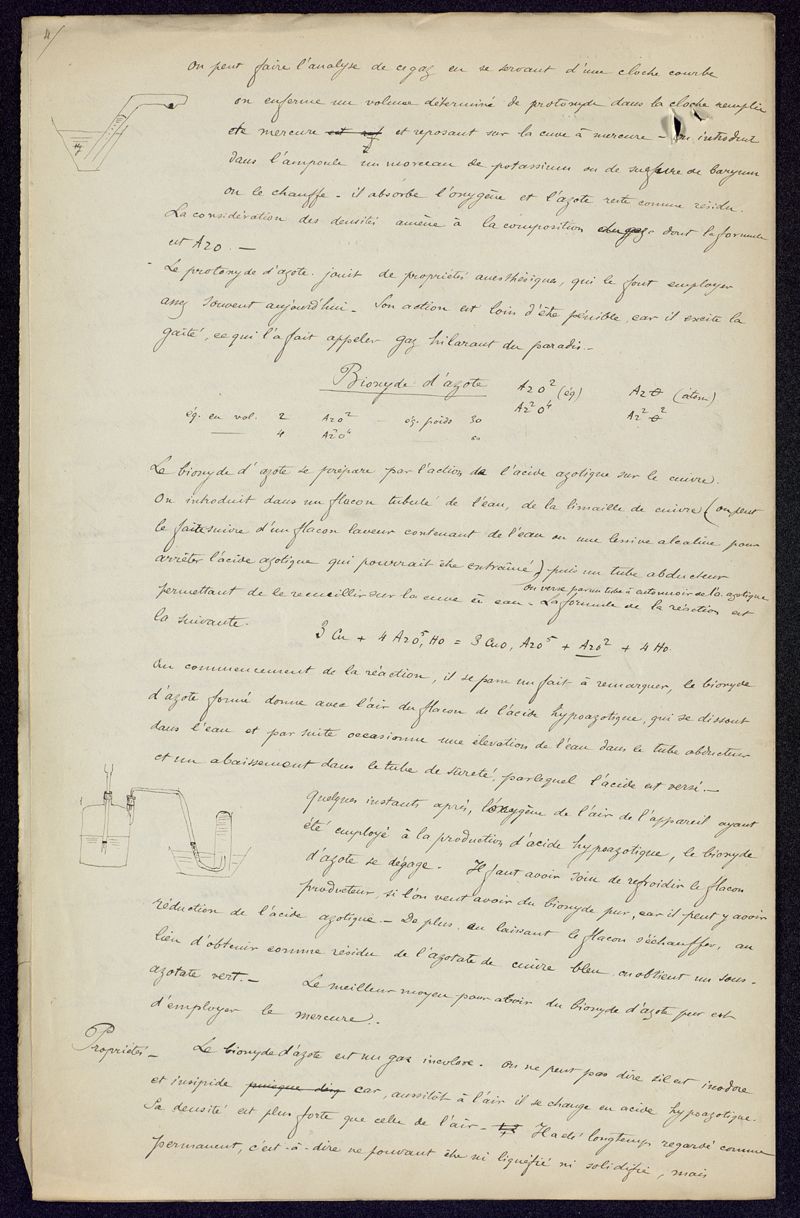 4/
On peut faire l'analyse de ce gaz en se servant d'une cloche courbe
on enferme un volume déterminé de protoxyde dans la cloche remplie
de mercure et reposant sur la cuve à mercure - On introduit
Hg
dans l'ampoule un morceau de potassium ou de sulfure de baryum
on le chauffe - il absorbe l'oxygène et l'azote reste comme résidu.
La considération des densités amène à la composition du gaz dont la formule
est AzO. —
Le protoxyde d'azote jouit de propriétés anesthésiques, qui le font employer
assez souvent aujourd'hui - Son action est loin d'être pénible, car il excite la
gaîté, ce qui l'a fait appeler gaz hilarant du paradis. -
Bioxyde d'azote AzO² (éq) AzO (atom)
Az²O⁴ Az²O²
éq. en vol. 2 AzO² - éq. poids 30
4 Az²O⁴ 60
Le bioxyde d'azote se prépare par l'action de l'acide azotique sur le cuivre.
On introduit dans un flacon tubulé de l'eau, de la limaille de cuivre (on peut
le faire suivre d'un flacon laveur contenant de l'eau ou une lessive alcaline pour
arrêter l'acide azotique qui pourrait être entraîné) puis un tube abducteur
on verse par un tube à entonnoir de l'a. azotique
permettant de le recueillir sur la cuve à eau - La formule de la réaction est
la suivante.
3 Cu + 4 AzO⁵, HO = 3 CuO, AzO⁵ + AzO² + 4 HO.
Au commencement de la réaction, il se passe un fait à remarquer, le bioxyde
d'azote formé donne avec l'air du flacon de l'acide hypoazotique, qui se dissout
dans l'eau et par suite occasionne une élévation de l'eau dans le tube abducteur
et un abaissement dans le tube de sûreté, par lequel l'acide est versé. -
Quelques instants après, l'oxygène de l'air de l'appareil ayant
été employé à la production d'acide hypoazotique, le bioxyde
d'azote se dégage - Il faut avoir soin de refroidir le flacon
producteur, si l'on veut avoir du bioxyde pur, car il peut y avoir
réduction de l'acide azotique. - De plus en laissant le flacon s'échauffer, au
lieu d'obtenir comme résidu de l'azotate de cuivre bleu on obtient un sous-
azotate vert. - Le meilleur moyen pour avoir du bioxyde d'azote pur est
d'employer le mercure. -
Propriétés - Le bioxyde d'azote est un gaz incolore. On ne peut pas dire s'il est inodore
et insipide puisque car, aussitôt à l'air il se change en acide hypoazotique.
Sa densité est plus forte que celle de l'air - Il a été longtemps regardé comme
permanent, c'est-à-dire ne pouvant être ni liquéfié ni solidifié, mais